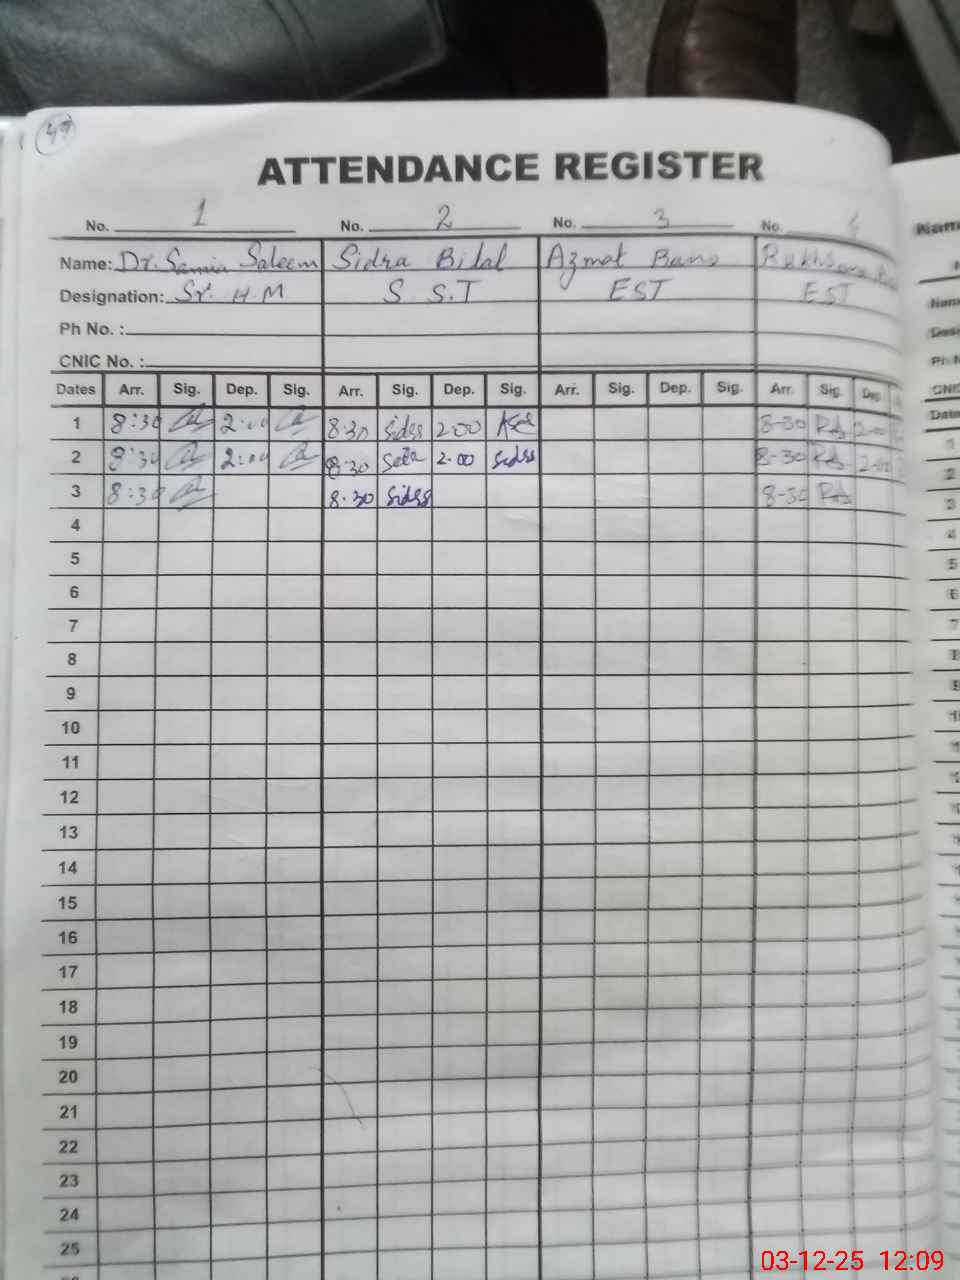 49
ATTENDANCE REGISTER
No. 1 No. 2 No. 3 No. 4
Name: Dr. Samia Saleem Sidra Bilal Azmat Bano
Designation: Sr. H.M S.S.T EST EST
Ph No. :
CNIC No. :
Dates Arr. Sig. Dep. Sig. Arr. Sig. Dep. Sig. Arr. Sig. Dep. Sig. Arr. Sig. Dep.
1 8:30 2:00 8:30 2.00 8-30 2-00
2 8:30 2:00 8:30 2.00 8-30 2-00
3 8:30 8.30 8-30
4
5
6
7
8
9
10
11
12
13
14
15
16
17
18
19
20
21
22
23
24
25
03-12-25 12:09